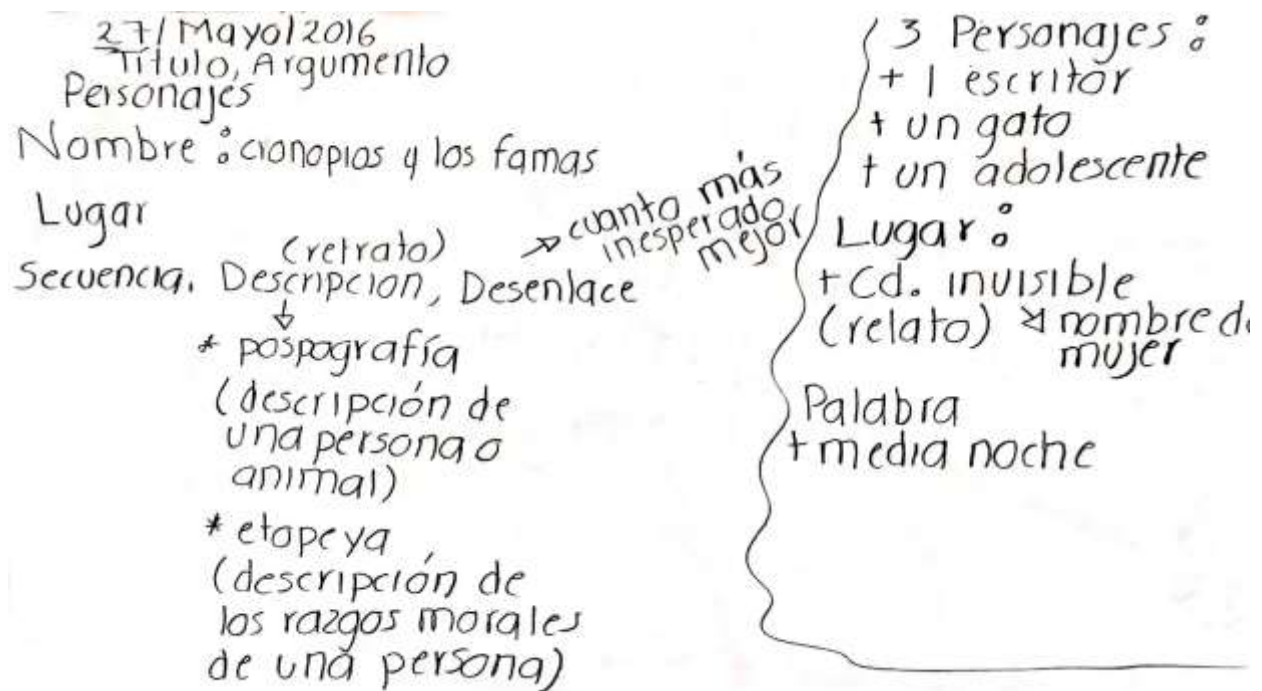 27/Mayo/2016
Título, Argumento
Personajes
Nombre: cronopios y los famas
Lugar
(retrato)
Secuencia, Descripción, Desenlace
cuanto más
inesperado
mejor
* pospografía
(descripción de
una persona o
animal)
* etopeya
(descripción de
los razgos morales
de una persona)
3 Personajes:
+ 1 escritor
+ un gato
+ un adolescente
Lugar:
+ Cd. invisible
(relato) nombre de
mujer
Palabra
+ media noche